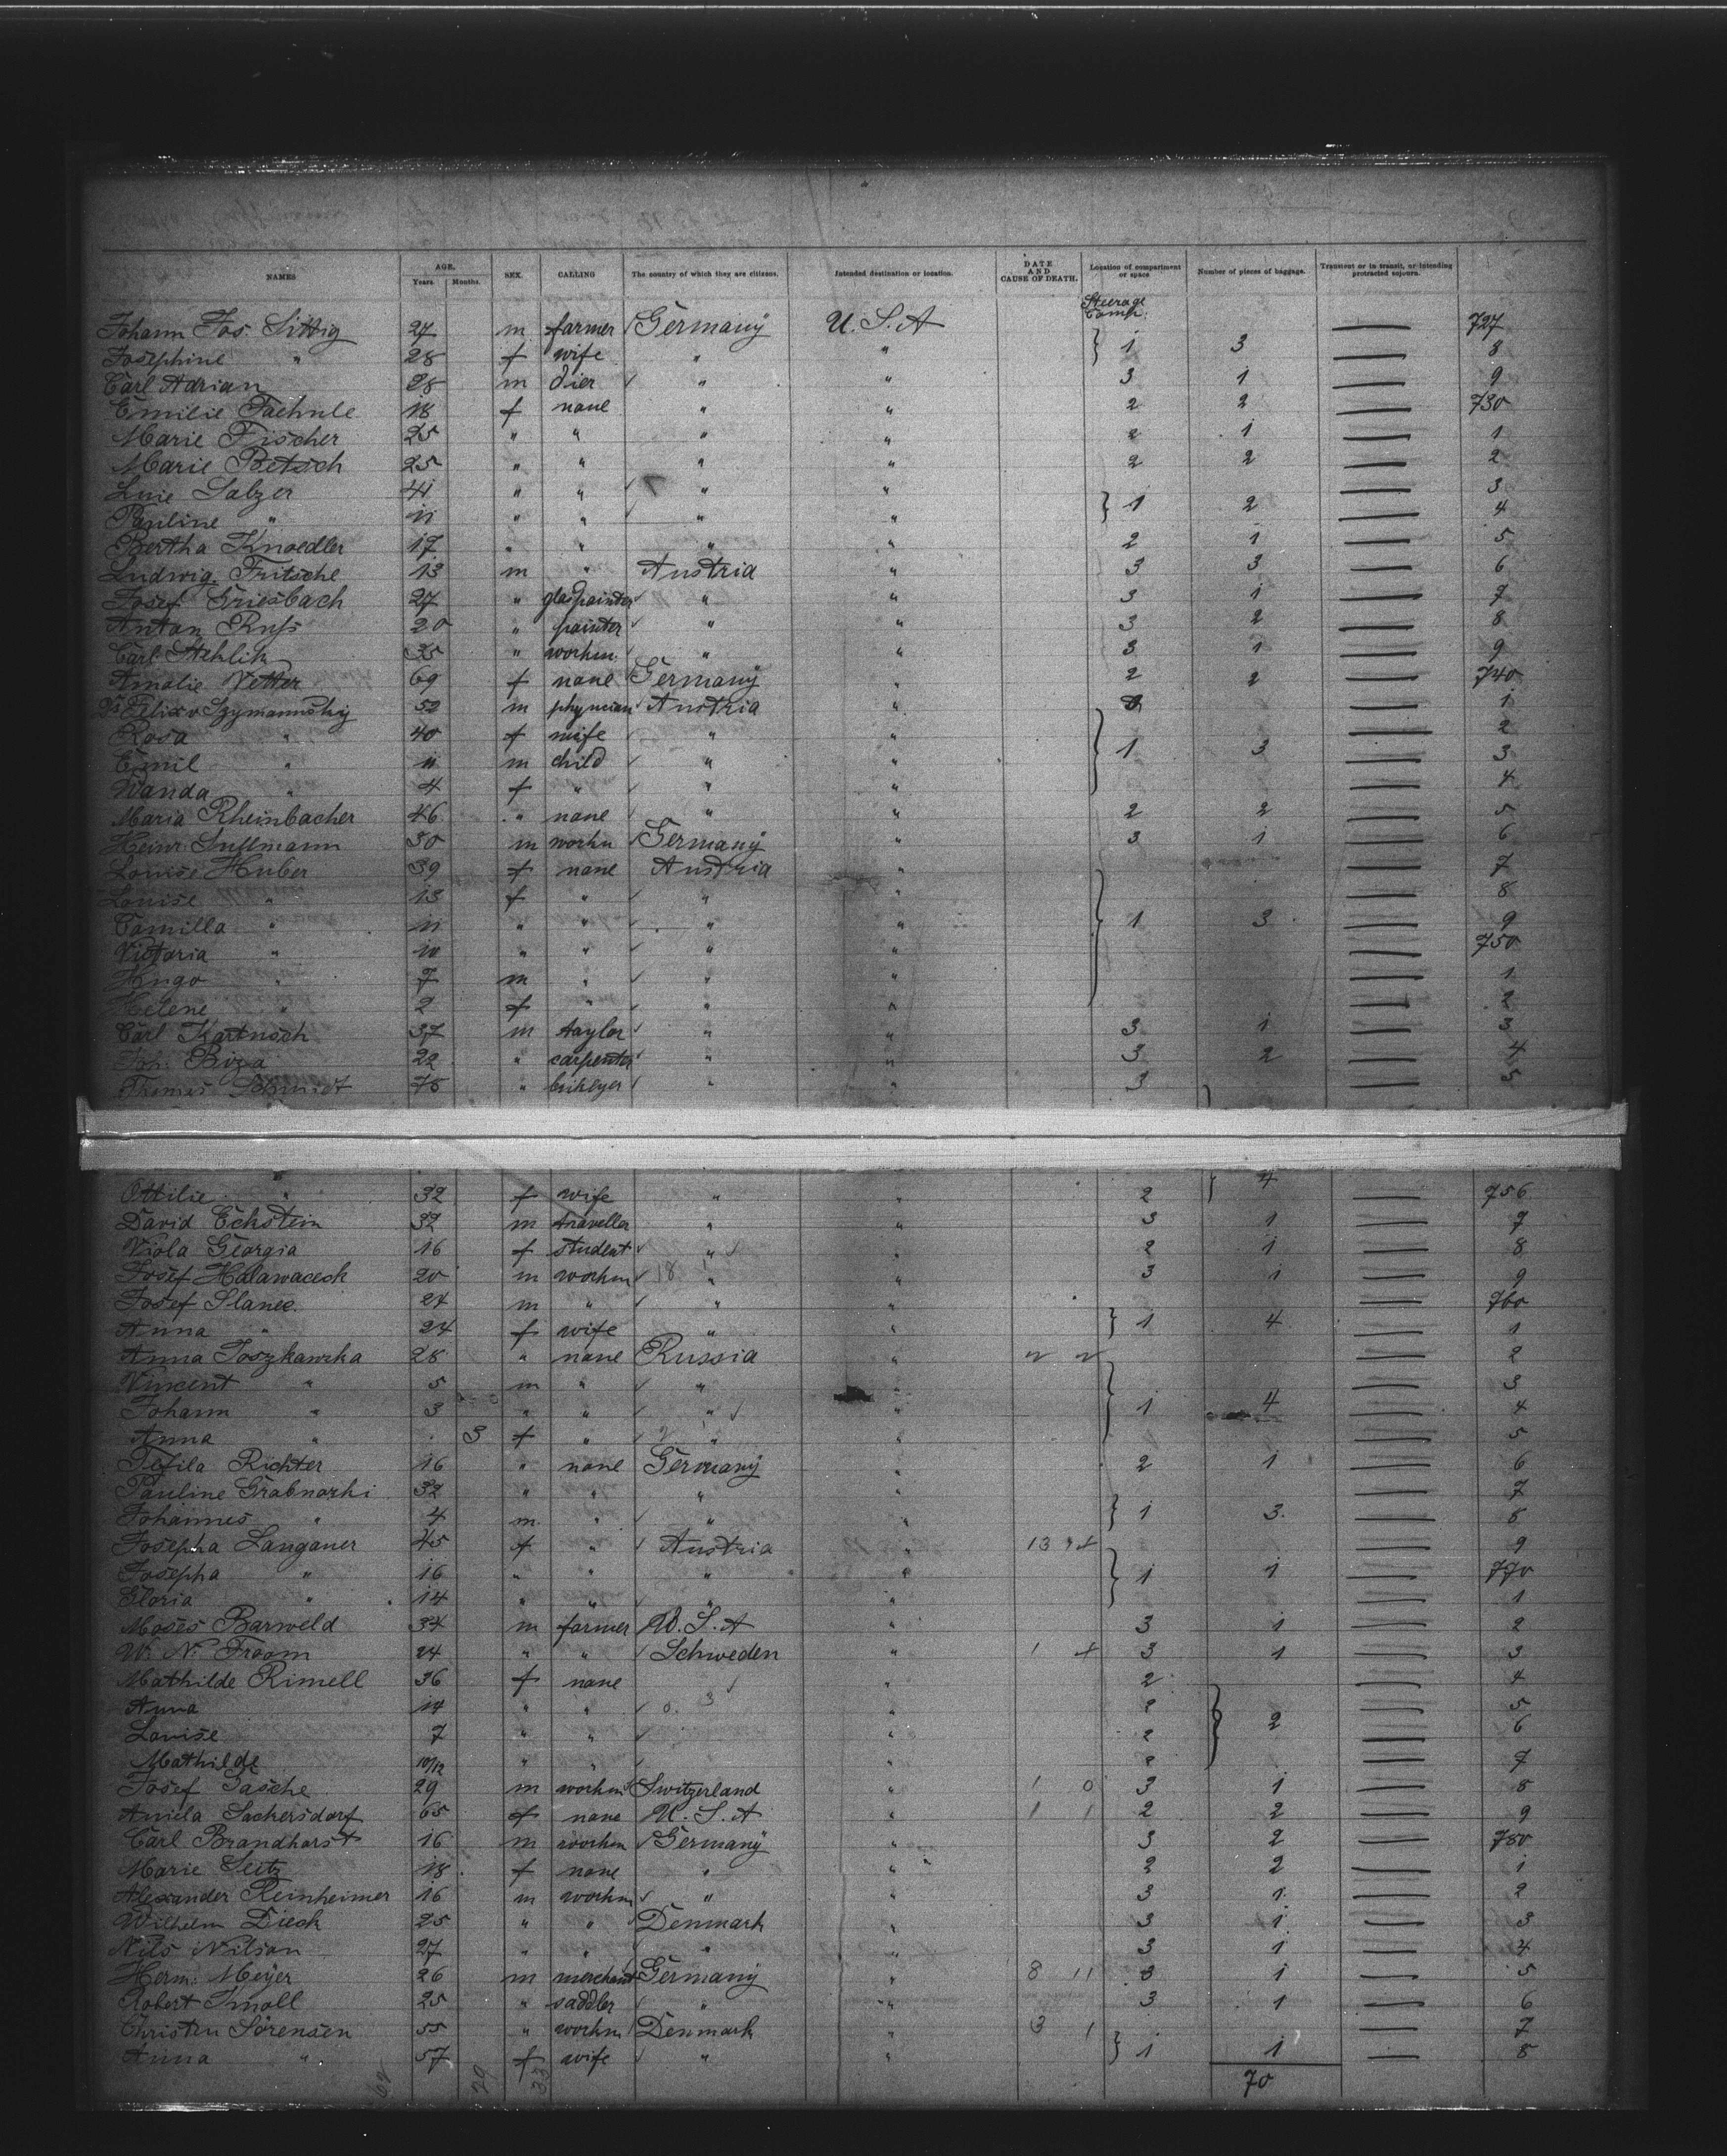 NAMES AGE. Years Months. SEX. CALLING The country of which they are citizens. Intended destination or location. DATE AND CAUSE OF DEATH. Location of compartment or space Number of pieces of baggage. Transient or in transit, or intending protracted sojourn.
Steerage Comp.
Johann Jos. Sittig 27 m farmer Germany U. S. A 727
Josephine " 28 f wife " " 1 3 8
Carl Adrian 28 m dier " " 3 1 9
Emilie Faehnle 18 f none " " 2 2 730
Marie Fischer 25 " " " " 2 1 1
Marie Betsch 25 " " " " 2 2 2
Luie Salzer 41 " " " " 3
Pauline " 11 " " " " 1 2 4
Bertha Knoedler 17 " " " " 2 1 5
Ludwig Fritsche 13 m " Austria " 3 3 6
Josef Griesbach 27 " glaspainter " " 3 1 7
Anton Russ 20 " painter " " 3 2 8
Carl Stehlik 35 " workm " " 3 1 9
Amalie Vetter 69 f none Germany " 2 2 740
Dr Felix v Szymannsky 52 m physician Austria " 1
Rosa " 40 f wife " " 2
Emil " 11 m child " " 1 3 3
Wanda " 4 f " " " 4
Maria Rheinbacher 46 " none " " 2 2 5
Heinr. Sullmann 30 m workm Germany " 3 1 6
Louise Huber 39 f none Austria " 7
Louise " 13 f " " " 8
Camilla " 11 " " " " 1 3 9
Victoria " 10 " " " " 750
Hugo " 7 m " " " 1
Helene " 2 f " " " 2
Carl Kartnsch 37 m taylor " " 3 1 3
Joh. Biza 22 " carpenter " " 3 2 4
Thomas Schmidt " " " 3 5
Ottilie " 32 f wife " " 2 4 756
David Eckstein 32 m traveller " " 3 1 7
Viola Georgia 16 f student " " 2 1 8
Josef Halawaceck 20 m workm " " 3 1 9
Josef Slanec 24 m " " " 760
Anna " 24 f wife " " 1 4 1
Anna Joszkawska 28 " none Russia " 2
Vincent " 5 m " " " 3
Johann " 3 " " " " 1 4 4
Anna " 3 f " " " 5
Tefila Richter 16 " none Germany " 2 1 6
Pauline Grabnozki 32 " " " " 7
Johannes " 4 m " " " 1 3 8
Josepha Langaner 45 f " Austria " 9
Josepha " 16 " " " " 1 1 770
Gloria " 14 " " " " 1
Moses Barweld 34 m farmer U. S. A " 3 1 2
W. N. Froom 24 " " Schweden " 3 1 3
Mathilde Rimell 36 f none " 2 4
Anna 14 " " " 2 5
Louise 7 " " " 2 2 6
Mathilde 10/12 " " " 2 7
Josef Sasche 29 m workm Switzerland " 1 0 3 1 8
Aniela Sackersdorf 65 f none U. S. A " 1 1 2 2 9
Carl Brandhorst 16 m workm Germany " 3 2 780
Marie Seitz 18 f none " " 2 2 1
Alexander Reinheimer 16 m workm " " 3 1 2
Wilhelm Dieck 25 " " Denmark " 3 1 3
Nils Nilson 27 " " " " 3 1 4
Herm. Meyer 26 m merchant Germany " 8 11 3 1 5
Robert Smoll 25 " saddler " " 3 1 6
Christen Sörensen 55 " workm Denmark " 3 1 7
Anna " 57 f wife " " 1 1 8
70